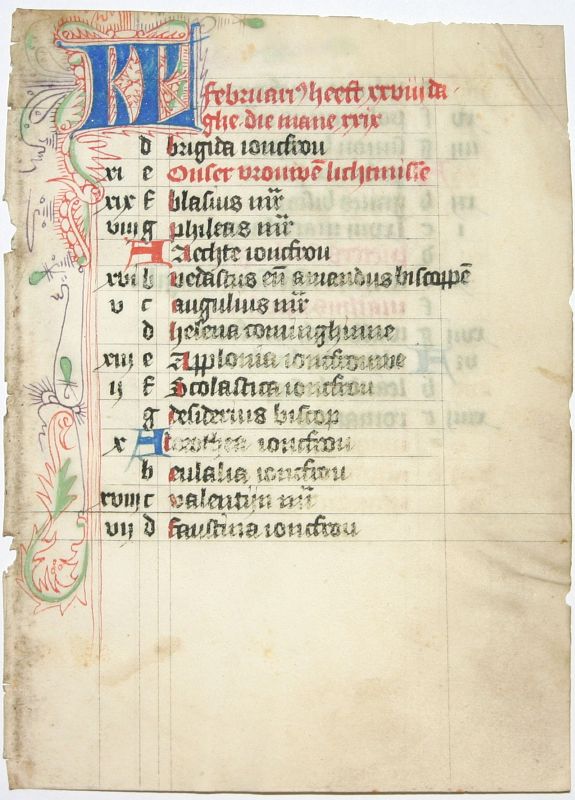 KL februari9 heeft xxviij da
ghe. die mane xxix
d brigida ionckfrou
xi e Onser vrouwē lichtmisse
xix f blasius mr̄
viij g phileas mr̄
A Aechte ionckfrou
xvi b vedastus eñ amandus biscoppē
v c augulius mr̄
d helena coninghinne
xiij e Applonia ionckfrouwe
ij f Scolastica ionckfrou
g desiderius biscop
x A dorothea ionckfrou
b eulalia ionckfrou
xviij c valentijn mr̄
vij d faustina ionckfrou